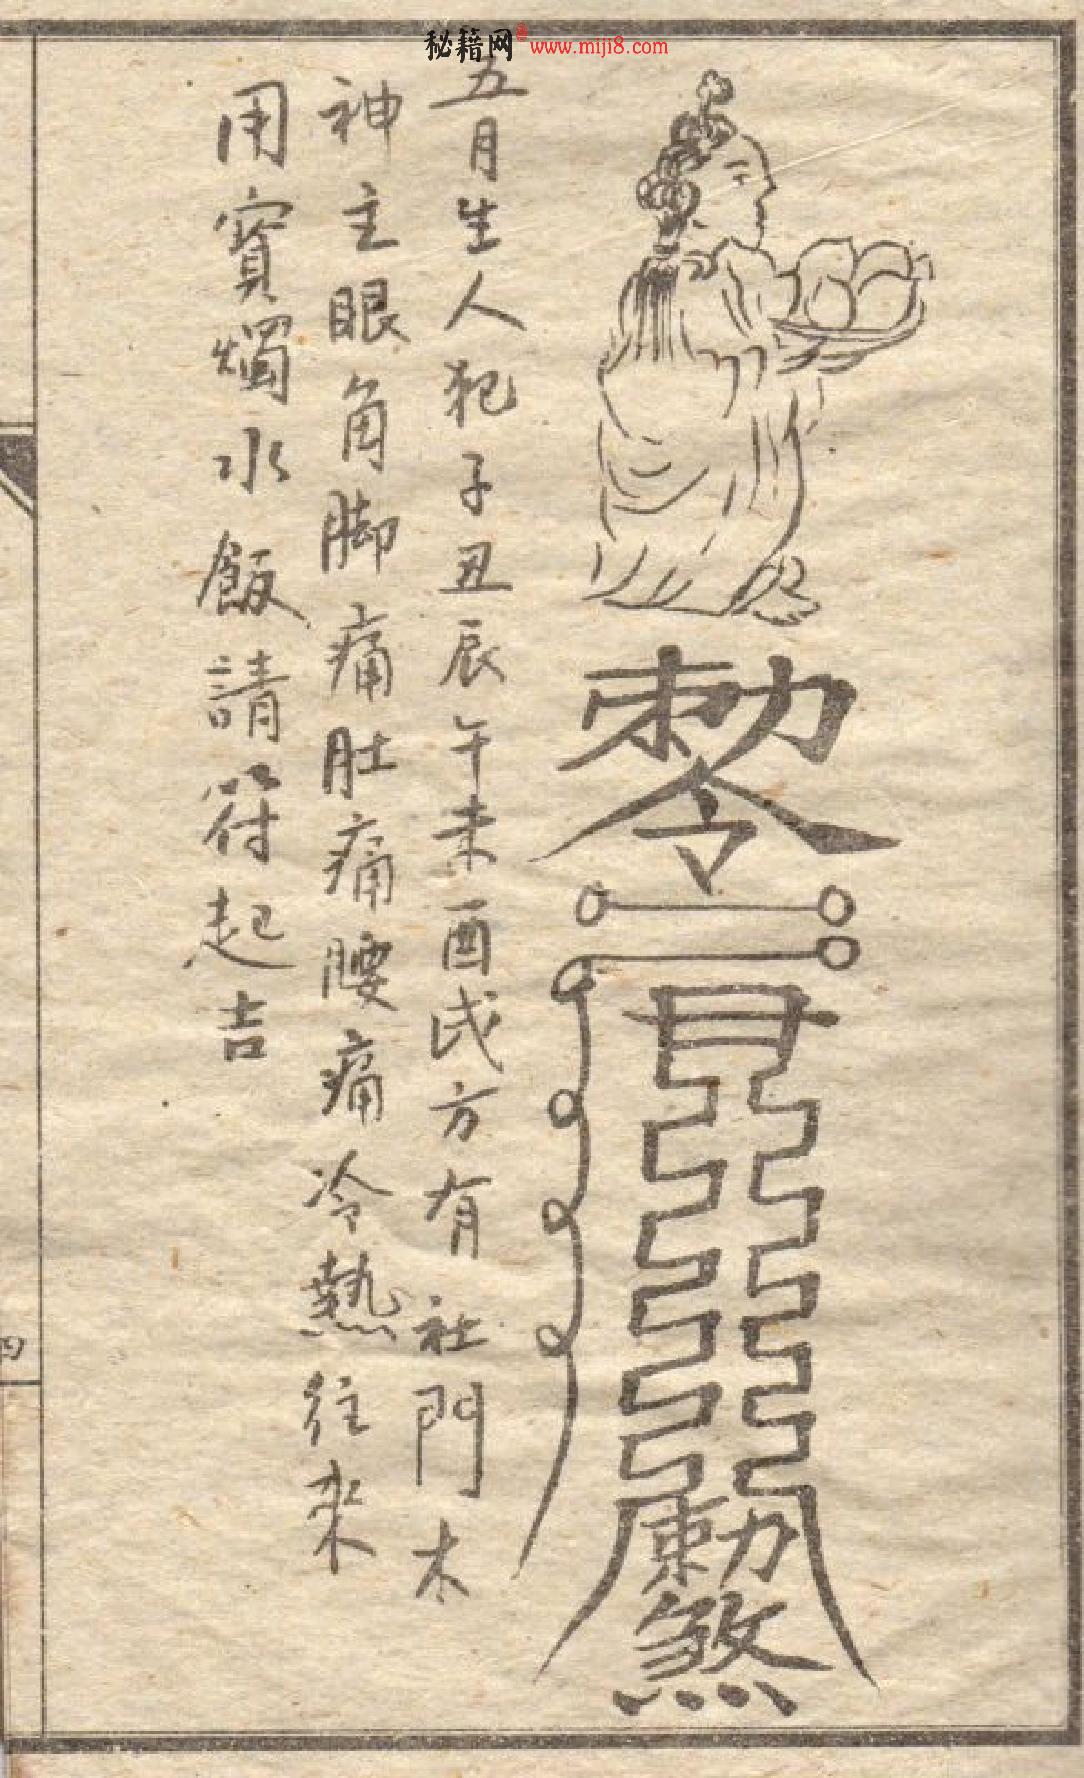 秘籍网 www.miji8.com
敕令
敕煞
五月生人犯子丑辰午未酉戌方有社門木
神主眼角脚痛肚痛腰痛冷熱往來
用寳燭水飯請符起吉
四